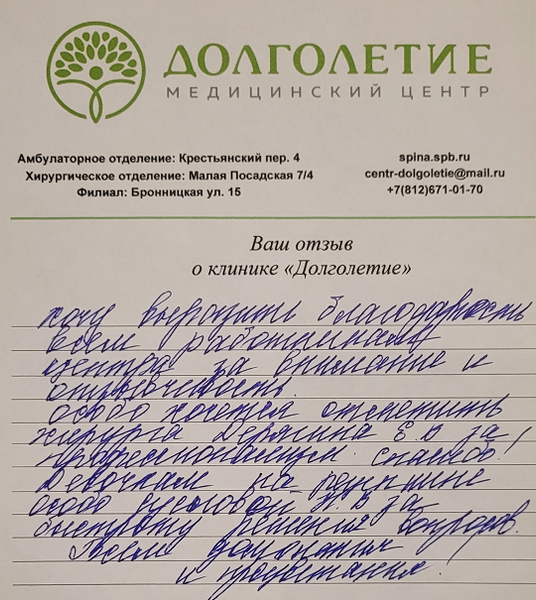 ДОЛГОЛЕТИЕ
МЕДИЦИНСКИЙ ЦЕНТР
Амбулаторное отделение: Крестьянский пер. 4
Хирургическое отделение: Малая Посадская 7/4
Филиал: Бронницкая ул. 15
spina.spb.ru
centr-dolgoletie@mail.ru
+7(812)671-01-70
Ваш отзыв
о клинике «Долголетие»
хочу выразить благодарность
всем работникам
центра за внимание и
отзывчивость.
особо хочется отметить
хирурга Е.В за
профессионализм спасибо!
Девочкам на
особо Н.В за
быструю решения вопросов.
Всем
и процветания.